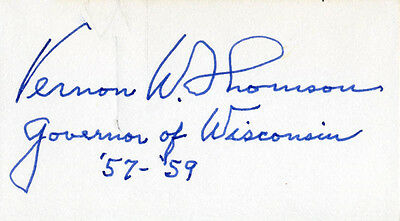 Vernon W. Thomson
Governor of Wisconsin
'57-'59